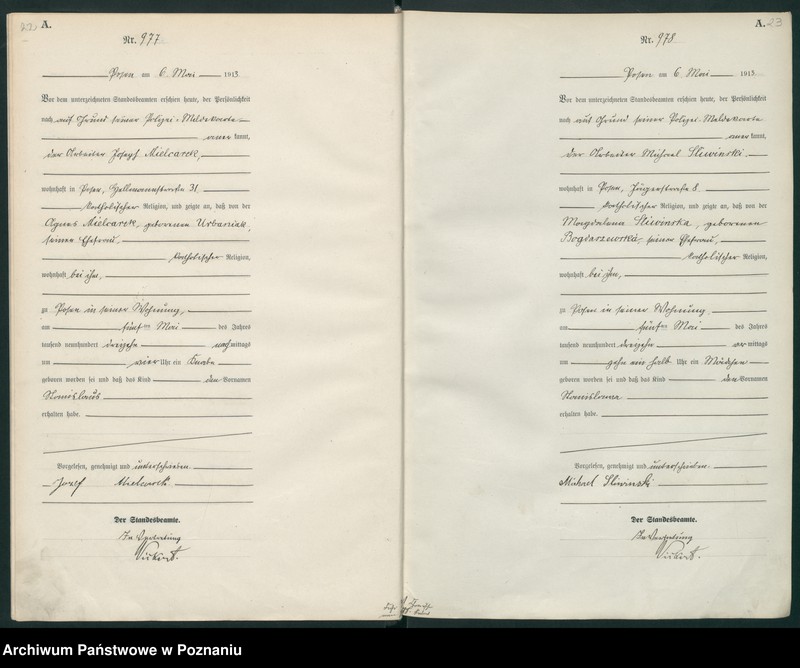 22
A.
Nr. 977
Posen am 6. Mai 1913.
Vor dem unterzeichneten Standesbeamten erschien heute, der Persönlichkeit
nach auf Grund seiner Polizei-Meldekarte
anerkannt,
der Arbeiter Josef Mielcarek,
wohnhaft in Posen, 31
katholischer Religion, und zeigte an, daß von der
Agnes Mielcarek, geborenen Urbaniak,
seiner Ehefrau,
katholischer Religion,
wohnhaft bei ihm,
zu Posen in seiner Wohnung,
am fünften Mai des Jahres
tausend neunhundert dreizehn nachmittags
um vier Uhr ein Knabe
geboren worden sei und daß das Kind den Vornamen
Stanislaus
erhalten habe.
Vorgelesen, genehmigt und unterschrieben.
Jozef Mielcarek
Der Standesbeamte.
In Vertretung
A. 23
Nr. 978
Posen am 6. Mai 1913.
Vor dem unterzeichneten Standesbeamten erschien heute, der Persönlichkeit
nach auf Grund seiner Polizei-Meldekarte
anerkannt,
der Arbeiter Michael Sliwinski,
wohnhaft in Posen, Jägerstraße 8
katholischer Religion, und zeigte an, daß von der
Magdalena Sliwinska, geborenen
seiner Ehefrau,
katholischer Religion,
wohnhaft bei ihm,
zu Posen in seiner Wohnung
am fünften Mai des Jahres
tausend neunhundert dreizehn vormittags
um zehn ein halb Uhr ein Mädchen
geboren worden sei und daß das Kind den Vornamen
Stanislawa
erhalten habe.
Vorgelesen, genehmigt und unterschrieben.
Michael Sliwinski
Der Standesbeamte.
In Vertretung
Archiwum Państwowe w Poznaniu